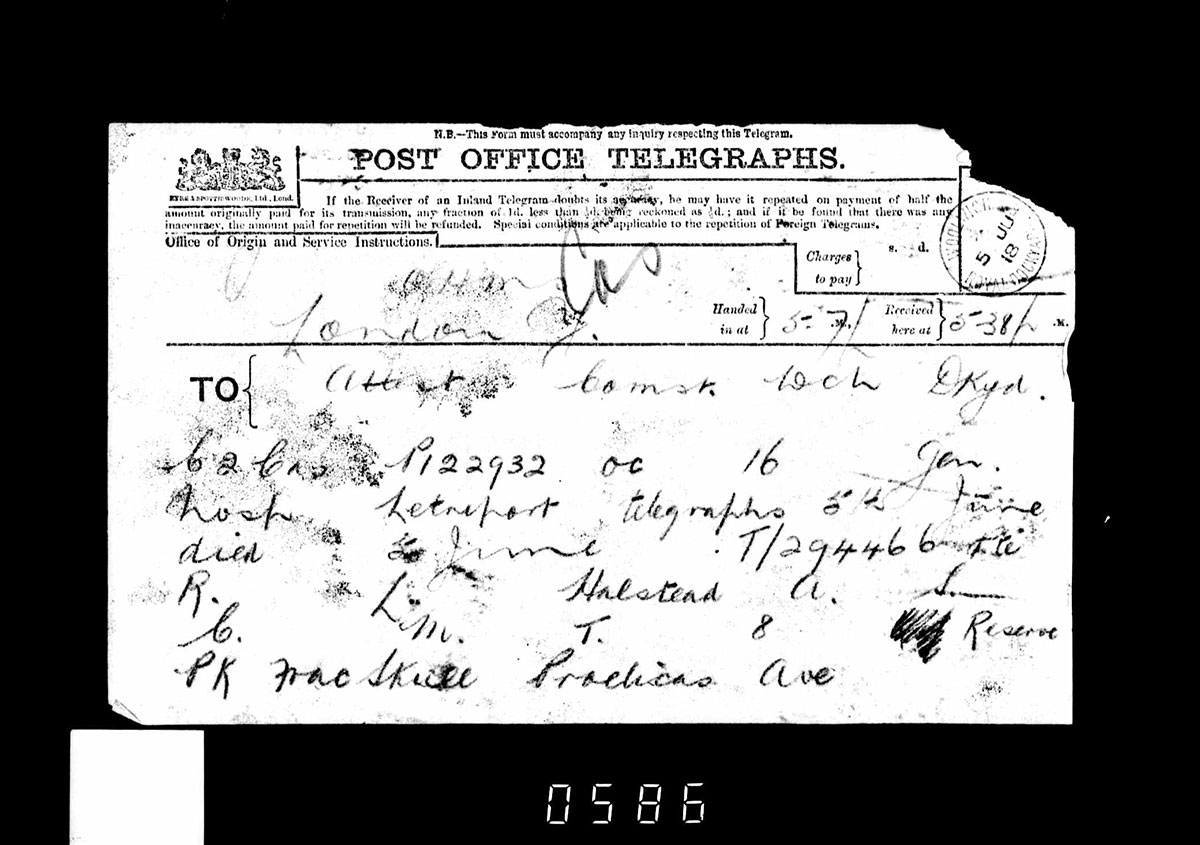 N.B.—This Form must accompany any inquiry respecting this Telegram.
POST OFFICE TELEGRAPHS.
EYRE & SPOTTISWOODE, Ltd., Lond.
If the Receiver of an Inland Telegram doubts its accuracy, he may have it repeated on payment of half the
amount originally paid for its transmission, any fraction of 1d. less than ½d. being reckoned as ½d.; and if it be found that there was any
inaccuracy, the amount paid for repetition will be refunded. Special conditions are applicable to the repetition of Foreign Telegrams.
Office of Origin and Service Instructions.
Charges to pay
s. d.
WOOLWICH
5 JU
18
ROYAL DOCKYARD
OHMS
Cas
London
Handed in at 5-7 .M.,
Received here at 5-38 .M.
TO Attest Comsr. Wch Dkyd.
C2 Cas P122932 OC 16 Gen.
hosp Letreport telegraphs 5th June
died 5 June T/294466 Pte
R. L. Halstead A. S
C. M. T. 8 Reserve
PK frac Skull Ave
0586